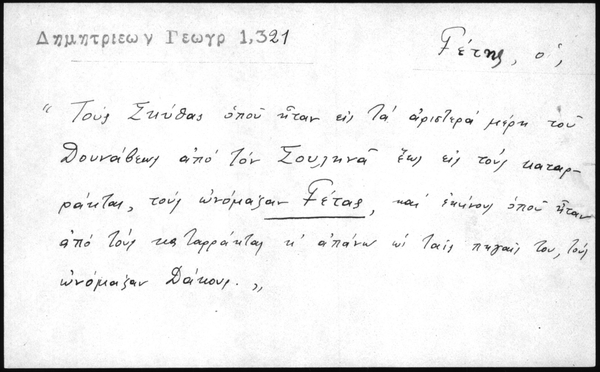 Δημητριεων Γεωγρ 1,321
Γέτης, ὁ,
“ Τοὺς Σκύθας ὁποῦ ἦταν εἰς τὰ ἀριστερὰ μέρη τοῦ
Δουνάβεως ἀπό τόν Σουλινᾶ ἕως εἰς τούς καταρ-
ράκτας, τούς ὠνόμαζαν Γέτας, καί ἐκείνους ὁποῦ ἦταν
ἀπό τούς καταρράκτας κ' ἀπάνω ὡς ταῖς πηγαῖς του, τούς
ὠνόμαζαν Δάκους. „